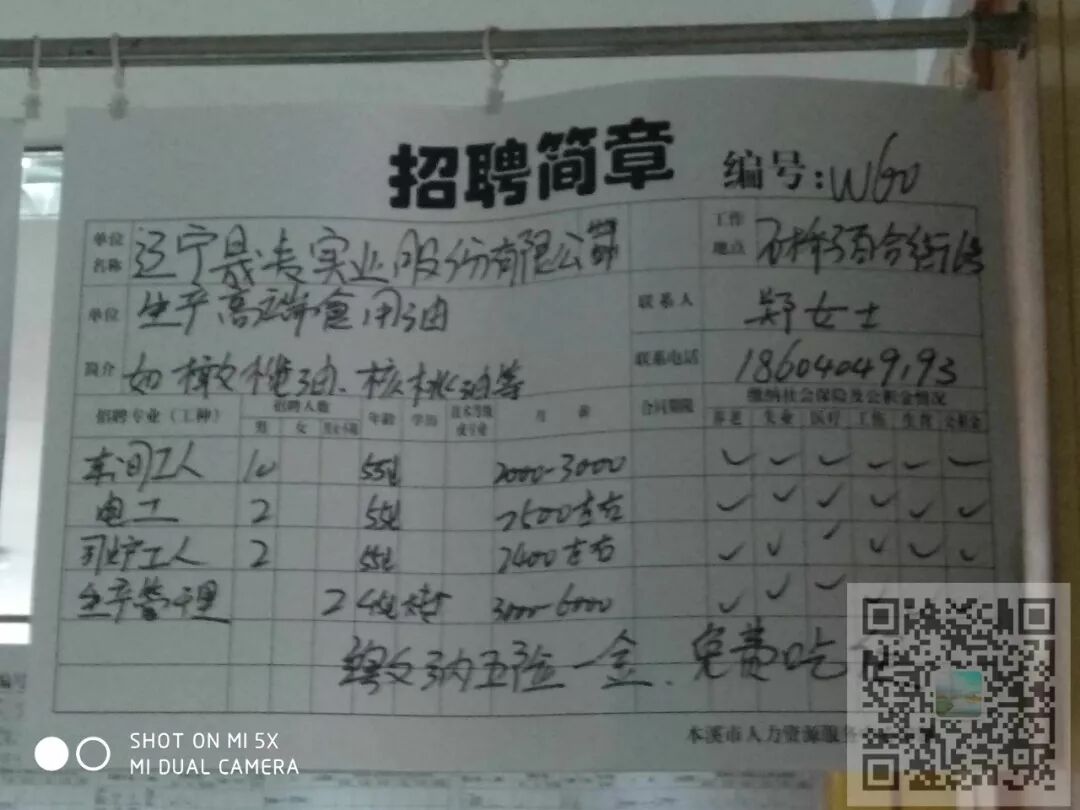 招聘简章
编号:W60
单位名称 辽宁晟麦实业股份有限公司 工作地点
单位简介 生产高端食用油 联系人 郑女士
如橄榄油、核桃油等 联系电话 18604049193
缴纳社会保险及公积金情况
招聘专业(工种) 招聘人数 年龄 学历 技术等级或专业 月薪 合同期限
男 女 男女不限 养老 失业 医疗 工伤 生育 公积金
车间工人 10 55以 2000-3000
电工 2 55以 2500左右
司炉工人 2 55以 2400左右
生产管理 2 45以 大专 3000-6000
缴纳五险一金、免费吃
本溪市人力资源服务
SHOT ON MI 5X
MI DUAL CAMERA